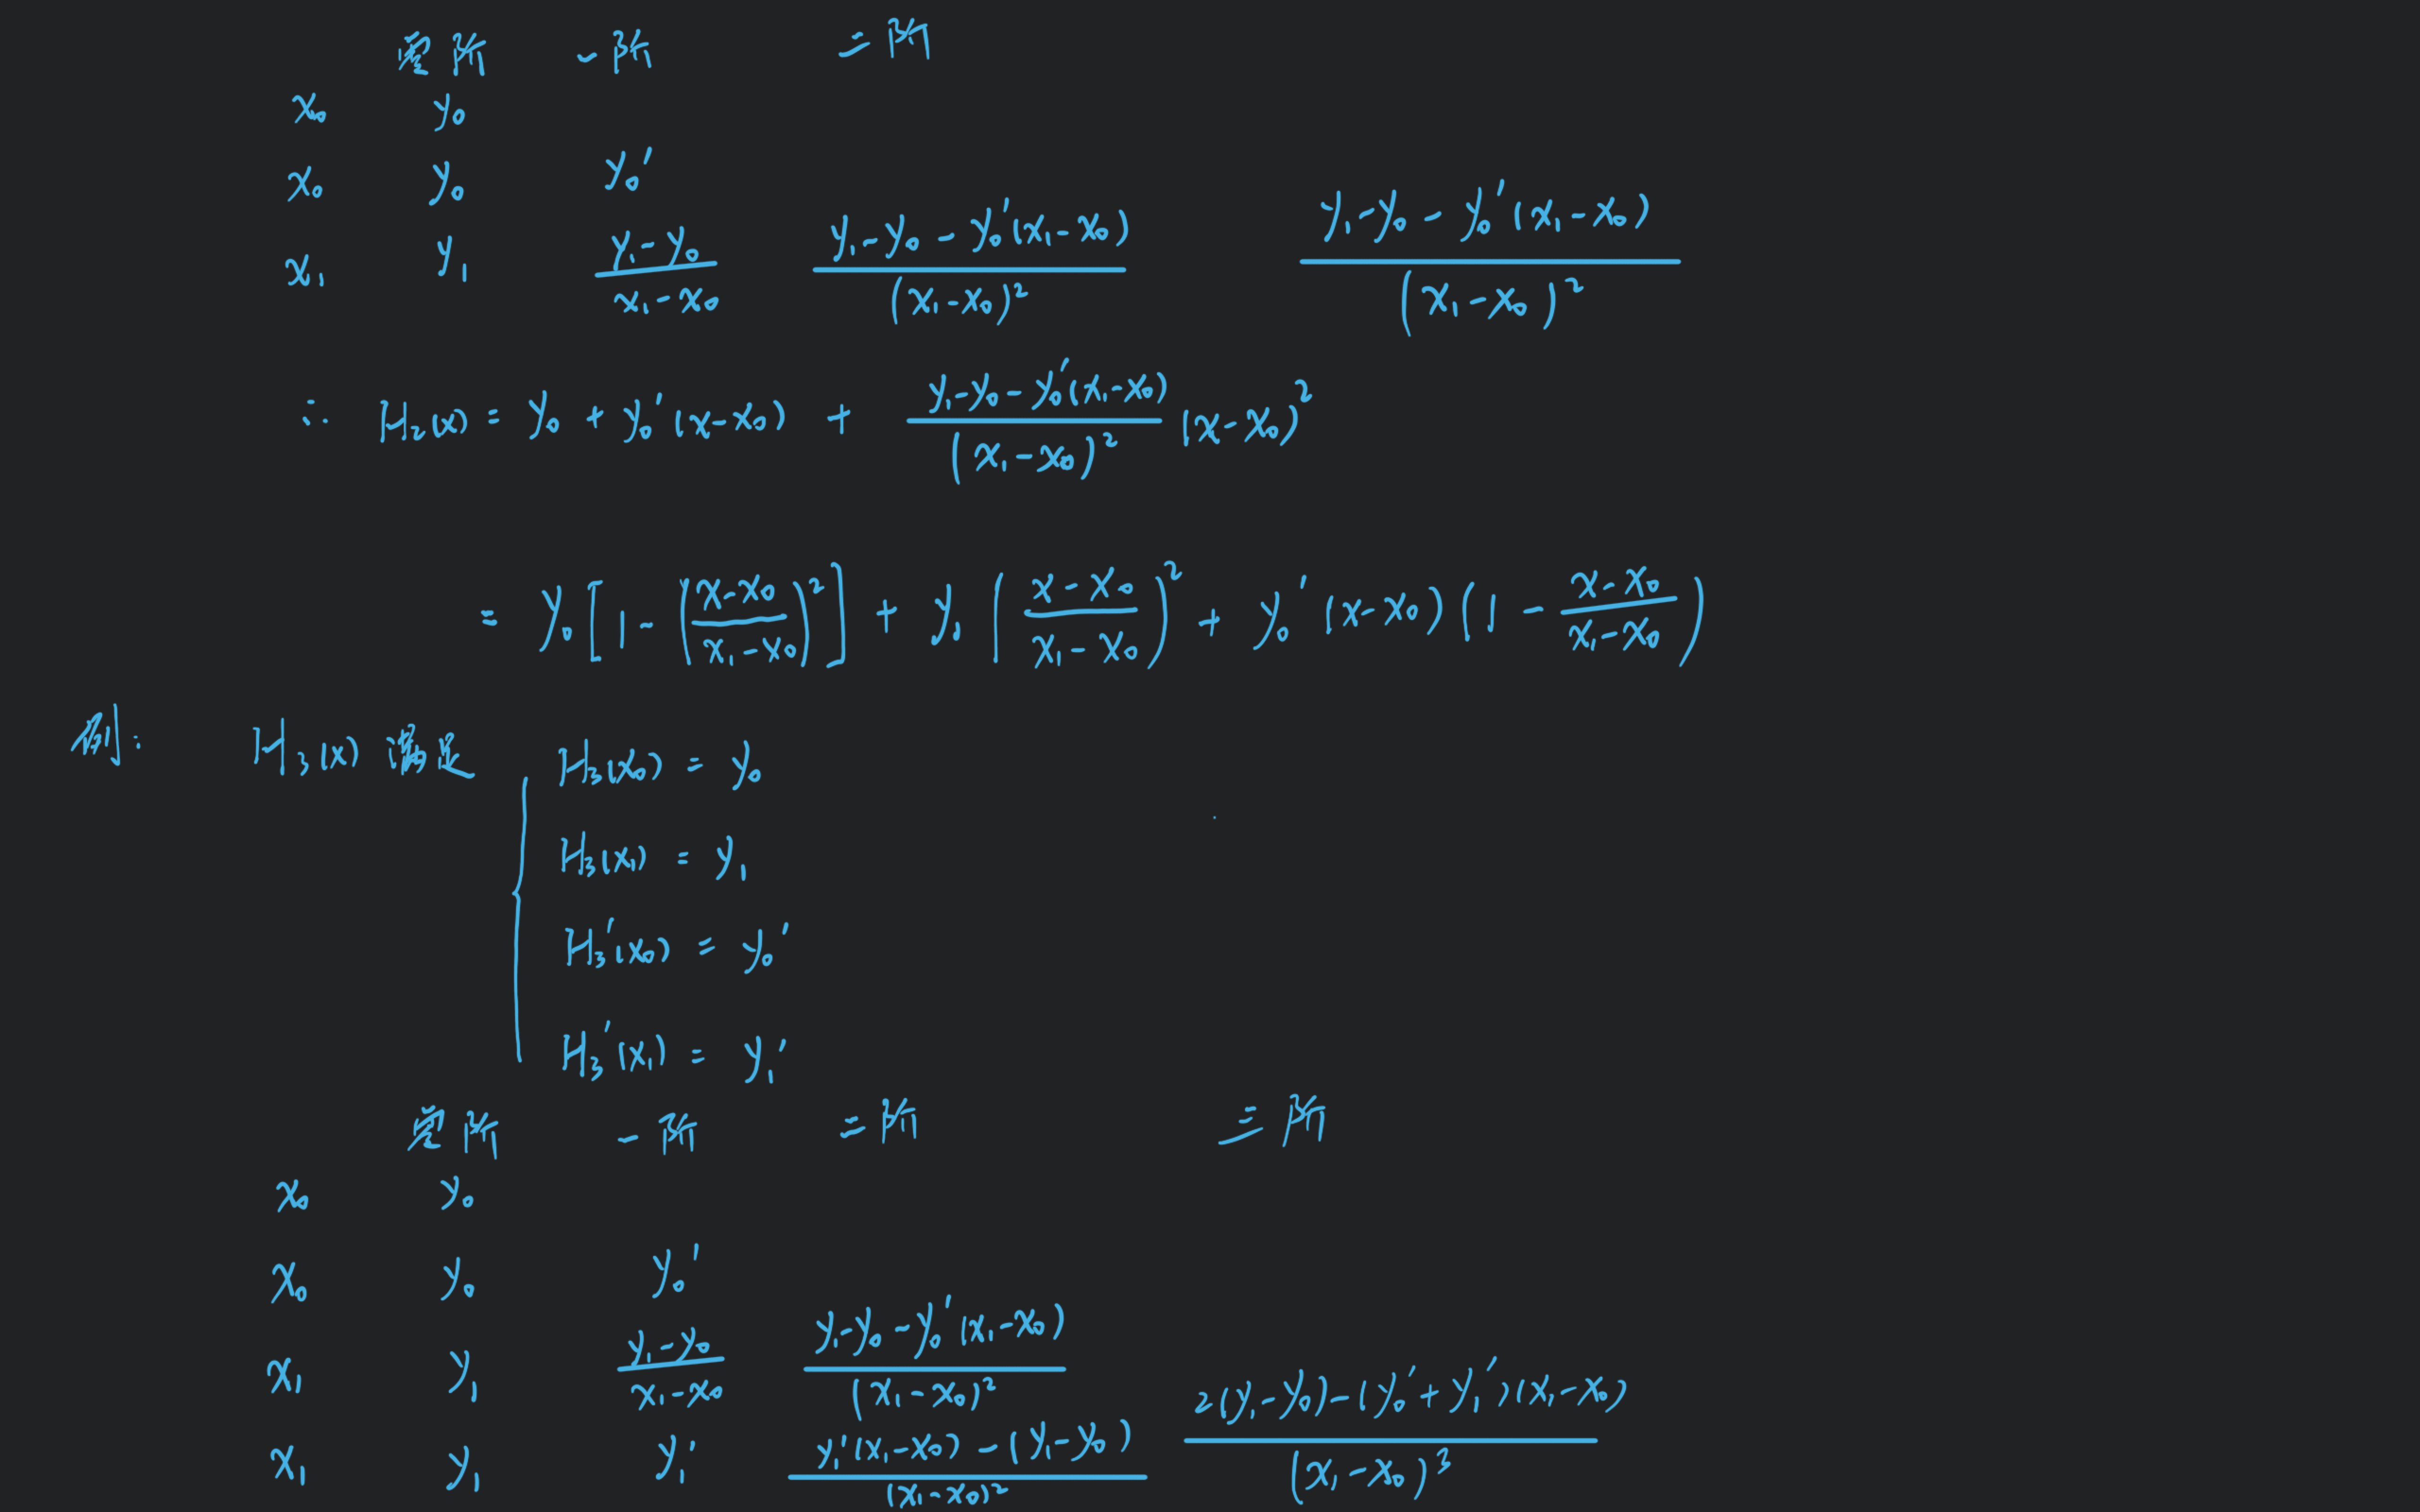 零阶 一阶 二阶
x₀ y₀
x₀ y₀ y₀'
x₁ y₁ (y₁-y₀)/(x₁-x₀) (y₁-y₀-y₀'(x₁-x₀))/(x₁-x₀)² (y₁-y₀-y₀'(x₁-x₀))/(x₁-x₀)²
∴ H₂(x) = y₀ + y₀'(x-x₀) + (y₁-y₀-y₀'(x₁-x₀))/(x₁-x₀)² (x-x₀)²
= y₀[1-((x-x₀)/(x₁-x₀))²] + y₁((x-x₀)/(x₁-x₀))² + y₀'(x-x₀)(1-(x-x₀)/(x₁-x₀))
例: H₃(x) 满足 { H₃(x₀) = y₀
H₃(x₁) = y₁
H₃'(x₀) = y₀'
H₃'(x₁) = y₁'
零阶 一阶 二阶 三阶
x₀ y₀
x₀ y₀ y₀'
x₁ y₁ (y₁-y₀)/(x₁-x₀) (y₁-y₀-y₀'(x₁-x₀))/(x₁-x₀)²
x₁ y₁ y₁' (y₁'(x₁-x₀)-(y₁-y₀))/(x₁-x₀)² (2(y₁-y₀)-(y₀'+y₁')(x₁-x₀))/(x₁-x₀)³